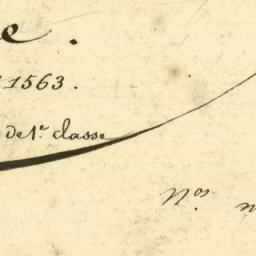 e.
1563.
de 1e. classe
Nos